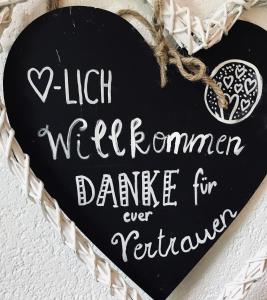 ♡-LICH
Willkommen
DANKE für
euer
Vertrauen